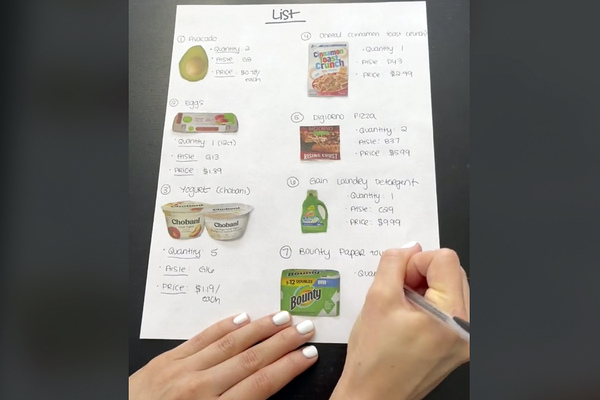 List
① Avocado
· Quantity 2
· Aisle:
· Price: /
each
② Eggs
· Quantity 1 (12ct)
· Aisle: G13
· Price: $1.39
③ Yogurt (Chobani)
Chobani
Chobani
· Quantity: 5
· Aisle: G16
· Price: $1.19/
each
④ Cereal (cinnamon toast crunch)
Cinnamon
Toast
Crunch
· Quantity: 1
· Aisle: D43
· Price: $2.99
⑤ Digiorno Pizza
DIGIORNO
RISING CRUST
· Quantity: 2
· Aisle: B77
· Price: $5.99
⑥ Gain Laundry Detergent
Gain
· Quantity: 1
· Aisle: C29
· Price: $9.99
⑦ Bounty Paper
Bounty
· Qua